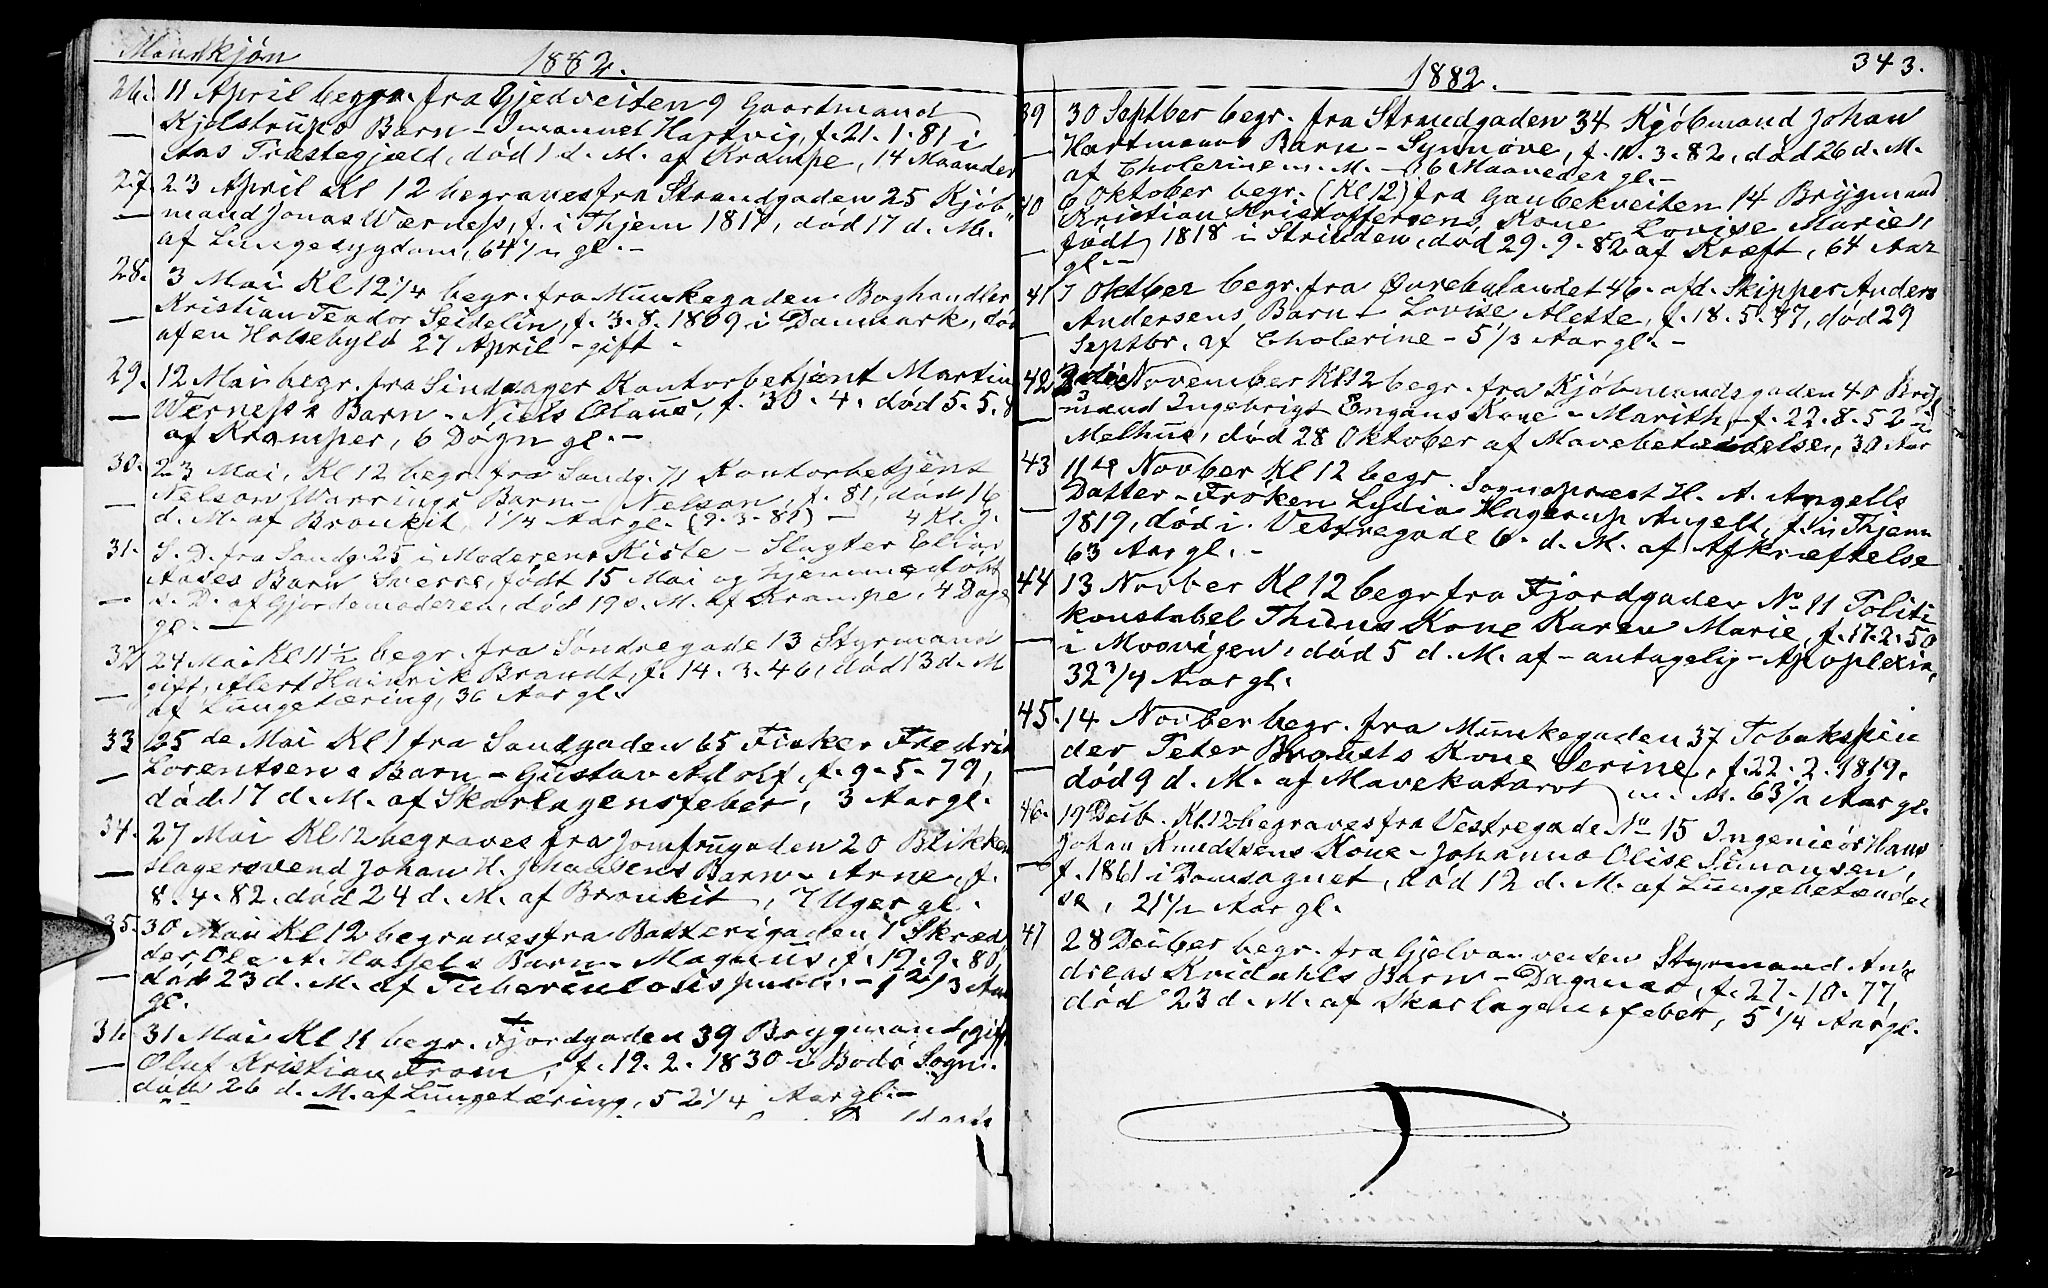 Mandkjön
1882.
26. 11 April begr. fra Gjedveiten 9 Gaartmand
Kjelstrups Barn - Imanuel Hartvig, f. 21.1.81 i
Aas Præstegjæld, død 1 d. M. af Krampe, 14 Maaneder
27. 23 April Kl 12 begraves fra Strandgaden 25 Kjöb-
mand Jonas Værness, f. i Thjem 1817, død 17 d. M.
af Lungesygdom, 64½ gl. -
28. 3 Mai Kl 12¼ begr. fra Munkegaden Boghandler
Kristian Teodor Seidelin, f. 3.8.1809 i Danmark, død
af en Halsebyld 27 April - gift -
29. 12 Mai begr. fra Kontorbetjent Martin
Werness's Barn - Niels Olaus, f. 30.4. død 5.5.8
af Kramper, 6 Døgn gl. -
30. 23 Mai, Kl 12 begr. fra Sandg. 71 Kontorbetjent
Nelson Warrings Barn - Nelson, f. 81, død 16
d. M. af Bronkit, 1¼ Aar gl. (9.3.81) - 4 Kl. g.
31. S. D. fra Sandg. 25 i Moderens Kiste - Slagter Elias
Aades Barn Sverre, født 15 Mai og hjemmedøbt
s. D. af Gjordemoderen, død 19 s. M. af Krampe, 4 Dage
gl. -
32 24 Mai Kl 11½ begr. fra Söndregade 13 Styrmand
gift, Alert Heinrik Brandt, f. 14.3.46, død 13 d. M
af Lungetæring, 36 Aar gl.
33 25de Mai Kl 1 fra Sandgaden 65 Fisker Fredrik
Lorentsens Barn - Gustav Adolf, f. 9.5.79,
død 17 d. M. af Skarlagensfeber, 3 Aar gl.
34. 27 Mai Kl 12 begraves fra Jomfrugaden 20 Blikken
slagersvend Johan H. Johansens Barn - Arne, f.
8.4.82. død 24 d. M. af Bronkit, 7 Uger gl.
35. 30 Mai Kl 12 begraves fra Batterigaden 7 Skræd
der Ole A. Hassels Barn - Magnus, f. 19.9.80,
død 23 d. M. af Tuberculosis pulm. - 1 2/3 Aar
gl.
36. 31 Mai Kl 11 begr. Fjordgaden 39 Brygmand, gift
Oluf Kristian From, f. 19.2.1830 i Bodø Sogn.
død 26 d. M. af Lungetæring, 52¼ Aar gl. -
343.
1882.
39 30 Septber begr. fra Strandgaden 34 Kjöbmand Johan
Hartmanns Barn - Synnöve, f. 11.3.82, død 26 d. M.
af Cholerine m. M. - 6 Maaneder gl. -
40 6 Oktober begr. (Kl 12) fra Gaubekveiten 14 Brygmand
Kristian Kristoffersens Kone Lovise Marie,
født 1818 i Strinden, død 29.9.82 af Kræft, 64 Aar
gl. -
41 7 Oktber begr. fra Øvrebylandet 46. afd. Skipper Anders
Andersens Barn - Lovise Alette, f. 18.5.77, død 29
Septbr. af Cholerine - 5 1/3 Aar gl. -
42 November Kl 12 begr. fra Kjöbmandsgaden 40 Bryg
mand Ingebrigt Engans Kone - Marith, f. 22.8.52 i
Melhus, død 28 Oktober af Mavebetændelse, 30 Aar
43 11te Novber Kl 12 begr. Sognepræst H. A. Angells
Datter - Fröken Lydia Hagerup Angell, f. i Thjem
1819, død i Vestregade 6. d. M. af Afkræftelse
63 Aar gl. -
44 13 Novber Kl 12 begr fra Fjordgaden No 11 Politi
konstabel Kone Karen Marie, f. 17.2.50
i Mosvigen, død 5 d. M. af - antagelig - Apoplexia,
32¾ Aar gl.
45. 14 Novber begr. fra Munkegaden 37 Tobakspin
der Peter Kone Serine, f. 22.2.1819,
død 9 d. M. af Mavekatarrh m. M. 63½ Aar gl.
46. 19 Decb. Kl 12 begraves fra Vestregade No 15 Ingeniör Hans
Johan Knudtsens Kone - Johanna Olise Simonsen,
f. 1861 i Domsognet, død 12 d. M. af Lungebetændel
se, 21½ Aar gl.
47 28 Decber begr. fra Gjelvanveiten Styrmand An-
dreas Kvidahls Barn - Dagmar, f. 27.10.77,
død 23 d. M. af Skarlagensfeber, 5¼ Aar gl.